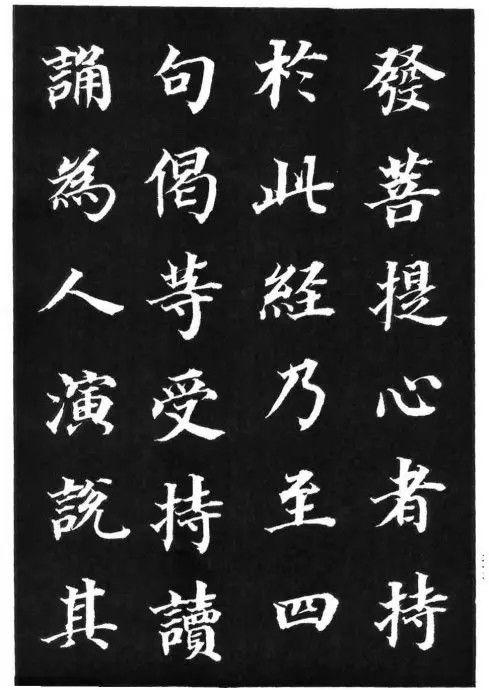 發菩提心者持
於此經乃至四
句偈等受持讀
誦為人演說其